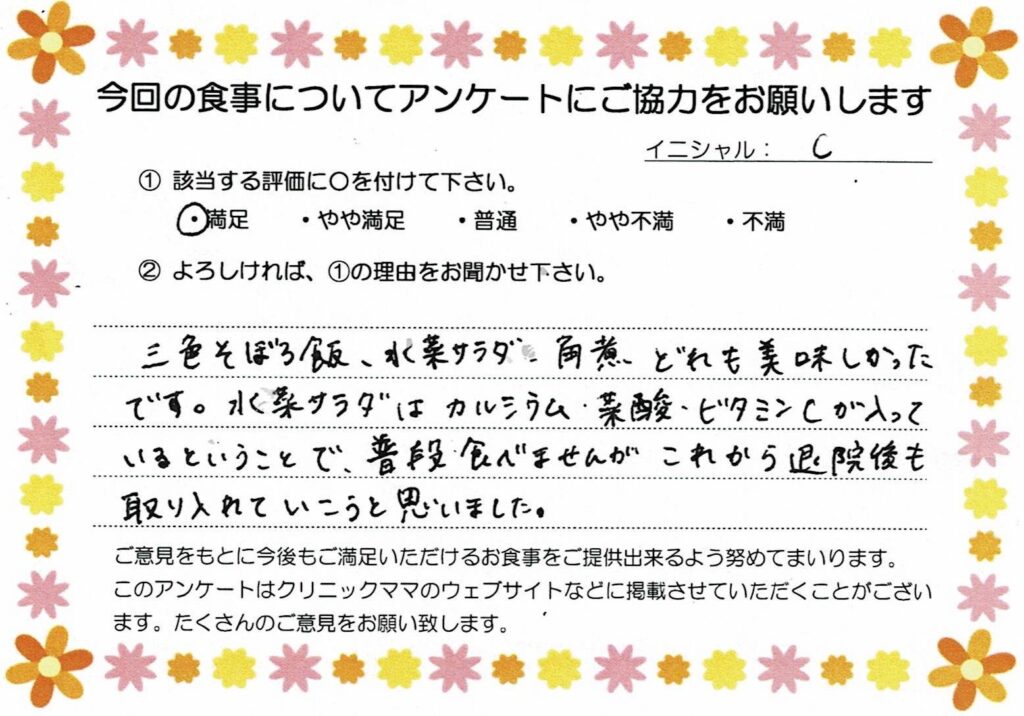 今回の食事についてアンケートにご協力をお願いします
イニシャル： C
① 該当する評価に〇を付けて下さい。
・満足 ・やや満足 ・普通 ・やや不満 ・不満
② よろしければ、①の理由をお聞かせ下さい。
三色そぼろ飯、水菜サラダ、角煮 どれも美味しかった
です。水菜サラダは カルシウム・葉酸・ビタミンCが入って
いるということで、普段食べませんが これから退院後も
取り入れていこうと思いました。
ご意見をもとに今後もご満足いただけるお食事をご提供出来るよう努めてまいります。
このアンケートはクリニックママのウェブサイトなどに掲載させていただくことがござい
ます。たくさんのご意見をお願い致します。